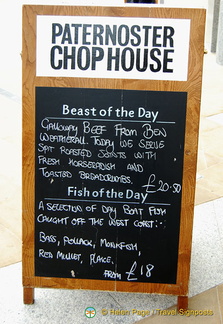 PATERNOSTER
CHOP HOUSE
Beast of the Day
GALLOWAY BEEF FROM BEN
WEATHERALL. TODAY WE SERVE
SPIT ROASTED JOINTS WITH
FRESH HORSERADISH AND
TOASTED BREADCRUMBS.
£20.50
Fish of the Day
A SELECTION OF DAY BOAT FISH
CAUGHT OFF THE WEST COAST:-
BASS, POLLACK, MONKFISH,
RED MULLET, PLAICE.
FROM £18
© Helen Page / Travel Signposts